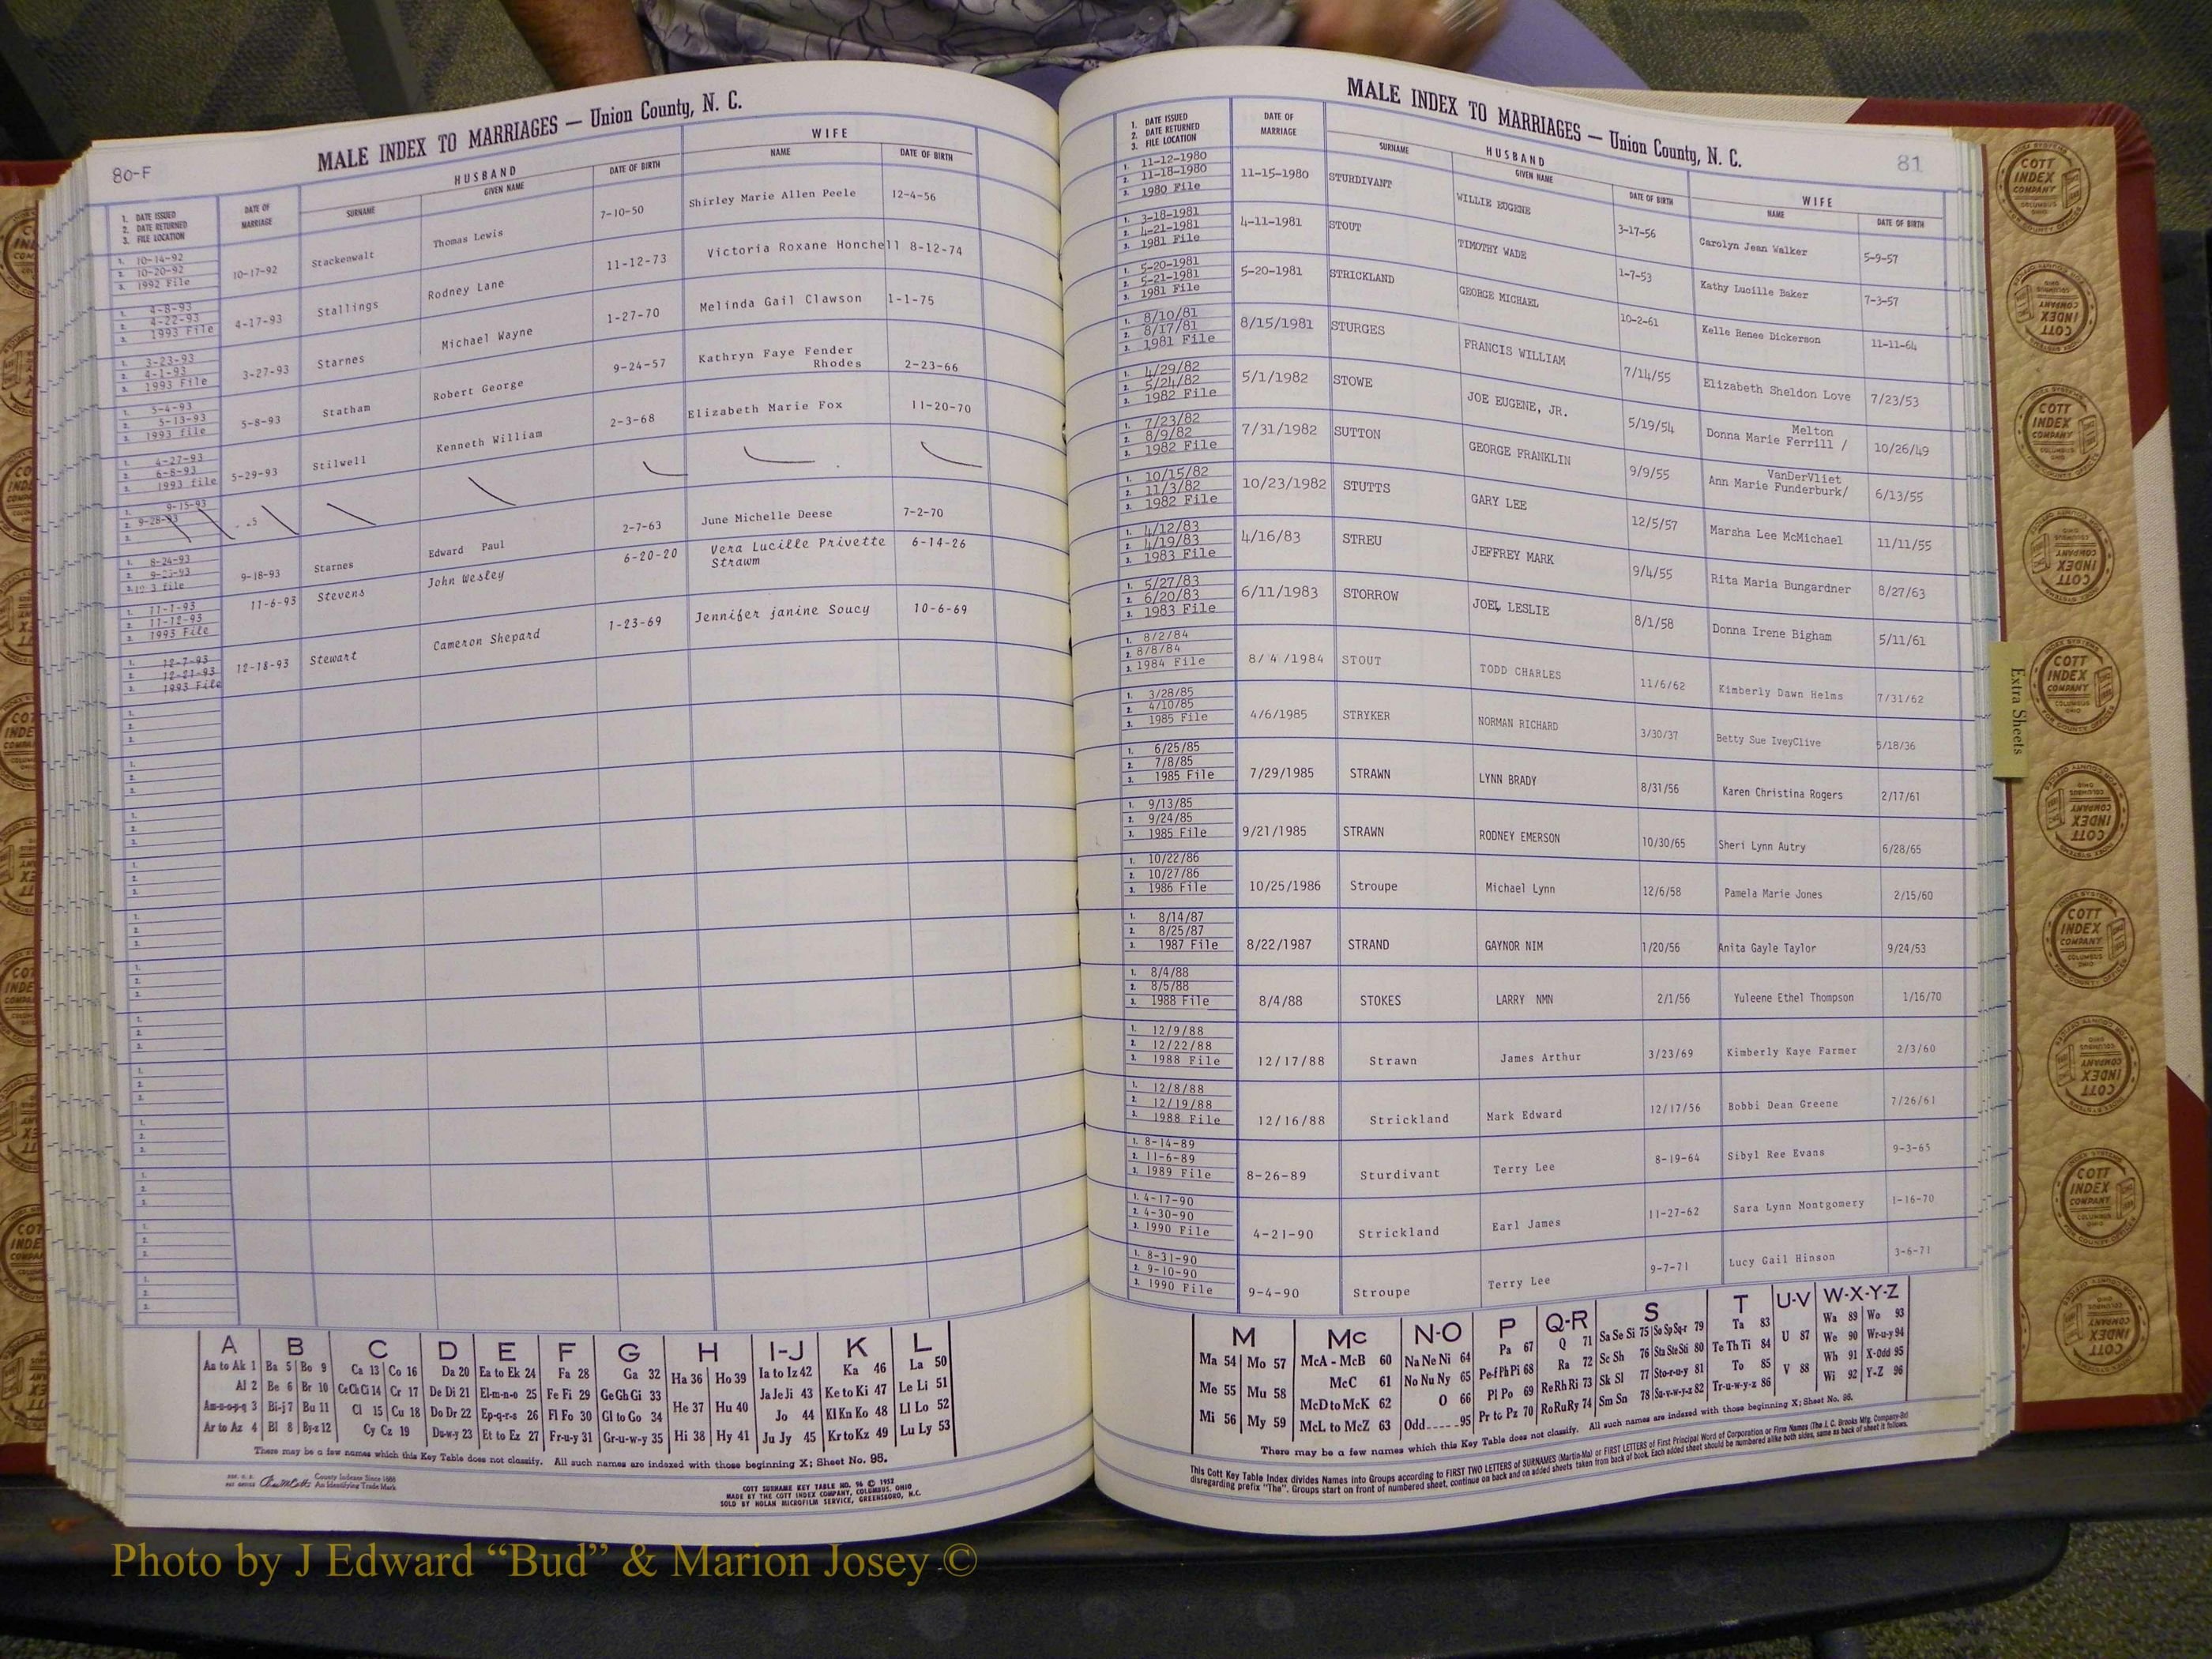 80-F
MALE INDEX TO MARRIAGES — Union County, N. C.
1. DATE ISSUED
2. DATE RETURNED
3. FILE LOCATION
DATE OF MARRIAGE
HUSBAND
SURNAME GIVEN NAME DATE OF BIRTH
WIFE
NAME DATE OF BIRTH
1. 10-14-92
2. 10-20-92 10-17-92 Stackenwalt Thomas Lewis 7-10-50 Shirley Marie Allen Peele 12-4-56
3. 1992 File
1. 4-8-93
2. 4-22-93 4-17-93 Stallings Rodney Lane 11-12-73 Victoria Roxane Honchell 8-12-74
3. 1993 File
1. 3-23-93
2. 4-1-93 3-27-93 Starnes Michael Wayne 1-27-70 Melinda Gail Clawson 1-1-75
3. 1993 File
1. 5-4-93
2. 5-13-93 5-8-93 Statham Robert George 9-24-57 Kathryn Faye Fender Rhodes 2-23-66
3. 1993 file
1. 4-27-93
2. 6-8-93 5-29-93 Stilwell Kenneth William 2-3-68 Elizabeth Marie Fox 11-20-70
3. 1993 file
1. 9-15-93
2. 9-28-93
3.
1. 8-24-93
2. 9-18-93 Starnes Edward Paul 2-7-63 June Michelle Deese 7-2-70
3. file
1. 11-1-93
2. 11-12-93 11-6-93 Stevens John Wesley 6-20-20 Vera Lucille Privette Strawm 6-14-26
3. 1993 File
1. 12-7-93
2. 12-21-93 12-18-93 Stewart Cameron Shepard 1-23-69 Jennifer janine Soucy 10-6-69
3. 1993 File
A B C D E F G H I-J K L
Aa to Ak 1 Ba 5 Bo 9 Ca 13 Co 16 Da 20 Ea to Ek 24 Fa 28 Ga 32 Ha 36 Ho 39 Ia to Iz 42 Ka 46 La 50
Al 2 Be 6 Br 10 Ce Ch Ci 14 Cr 17 De Di 21 El-m-n-o 25 Fe Fi 29 Ge Gh Gi 33 He 37 Hu 40 Ja Je Ji 43 Ke to Ki 47 Le Li 51
Am-n-o-p-q 3 Bi-j 7 Bu 11 Cl 15 Cu 18 Do Dr 22 Ep-q-r-s 26 Fl Fo 30 Gl to Go 34 Hi 38 Hy 41 Jo 44 Kl Kn Ko 48 Ll Lo 52
Ar to Az 4 Bl 8 By-z 12 Cy Cz 19 Du-w-y 23 Et to Ez 27 Fr-u-y 31 Gr-u-w-y 35 Ju Jy 45 Kr to Kz 49 Lu Ly 53
There may be a few names which this Key Table does not classify. All such names are indexed with those beginning X; Sheet No. 95.
County Indexes Since 1888
An Identifying Trade Mark
COTT SURNAME KEY TABLE NO. 96 © 1952
MADE BY THE COTT INDEX COMPANY, COLUMBUS, OHIO
SOLD BY NOLAN MICROFILM SERVICE, GREENSBORO, N.C.
MALE INDEX TO MARRIAGES — Union County, N. C.
81
1. DATE ISSUED
2. DATE RETURNED
3. FILE LOCATION
DATE OF MARRIAGE
HUSBAND
SURNAME GIVEN NAME DATE OF BIRTH
WIFE
NAME DATE OF BIRTH
1. 11-12-1980
2. 11-18-1980 11-15-1980 STURDIVANT WILLIE EUGENE 3-17-56 Carolyn Jean Walker 5-9-57
3. 1980 File
1. 3-18-1981
2. 4-21-1981 4-11-1981 STOUT TIMOTHY WADE 1-7-53 Kathy Lucille Baker 7-3-57
3. 1981 File
1. 5-20-1981
2. 5-21-1981 5-20-1981 STRICKLAND GEORGE MICHAEL 10-2-61 Kelle Renee Dickerson 11-11-64
3. 1981 File
1. 8/10/81
2. 8/17/81 8/15/1981 STURGES FRANCIS WILLIAM 7/14/55 Elizabeth Sheldon Love 7/23/53
3. 1981 File
1. 4/29/82
2. 5/24/82 5/1/1982 STOWE JOE EUGENE, JR. 5/19/54 Donna Marie Ferrill / Melton 10/26/49
3. 1982 File
1. 7/23/82
2. 8/9/82 7/31/1982 SUTTON GEORGE FRANKLIN 9/9/55 Ann Marie Funderburk/ VanDerVliet 6/13/55
3. 1982 File
1. 10/15/82
2. 11/3/82 10/23/1982 STUTTS GARY LEE 12/5/57 Marsha Lee McMichael 11/11/55
3. 1982 File
1. 4/12/83
2. 4/19/83 4/16/83 STREU JEFFREY MARK 9/4/55 Rita Maria Bungardner 8/27/63
3. 1983 File
1. 5/27/83
2. 6/20/83 6/11/1983 STORROW JOEL LESLIE 8/1/58 Donna Irene Bigham 5/11/61
3. 1983 File
1. 8/2/84
2. 8/8/84 8/ 4 /1984 STOUT TODD CHARLES 11/6/62 Kimberly Dawn Helms 7/31/62
3. 1984 File
1. 3/28/85
2. 4/10/85 4/6/1985 STRYKER NORMAN RICHARD 3/30/37 Betty Sue IveyClive 5/18/36
3. 1985 File
1. 6/25/85
2. 7/8/85 7/29/1985 STRAWN LYNN BRADY 8/31/56 Karen Christina Rogers 2/17/61
3. 1985 File
1. 9/13/85
2. 9/24/85 9/21/1985 STRAWN RODNEY EMERSON 10/30/65 Sheri Lynn Autry 6/28/65
3. 1985 File
1. 10/22/86
2. 10/27/86 10/25/1986 Stroupe Michael Lynn 12/6/58 Pamela Marie Jones 2/15/60
3. 1986 File
1. 8/14/87
2. 8/25/87 8/22/1987 STRAND GAYNOR NIM 1/20/56 Anita Gayle Taylor 9/24/53
3. 1987 File
1. 8/4/88
2. 8/5/88 8/4/88 STOKES LARRY NMN 2/1/56 Yuleene Ethel Thompson 1/16/70
3. 1988 File
1. 12/9/88
2. 12/22/88 12/17/88 Strawn James Arthur 3/23/69 Kimberly Kaye Farmer 2/3/60
3. 1988 File
1. 12/8/88
2. 12/19/88 12/16/88 Strickland Mark Edward 12/17/56 Bobbi Dean Greene 7/26/61
3. 1988 File
1. 8-14-89
2. 11-6-89 8-26-89 Sturdivant Terry Lee 8-19-64 Sibyl Ree Evans 9-3-65
3. 1989 File
1. 4-17-90
2. 4-30-90 4-21-90 Strickland Earl James 11-27-62 Sara Lynn Montgomery 1-16-70
3. 1990 File
1. 8-31-90
2. 9-10-90 9-4-90 Stroupe Terry Lee 9-7-71 Lucy Gail Hinson 3-6-71
3. 1990 File
M Mc N-O P Q-R S T U-V W-X-Y-Z
Ma 54 Mo 57 McA - McB 60 Na Ne Ni 64 Pa 67 Q 71 Sa Se Si 75 So Sp Sq-r 79 Ta 83 U 87 Wa 89 Wo 93
Me 55 Mu 58 McC 61 No Nu Ny 65 Pe-f Ph Pi 68 Ra 72 Sc Sh 76 Sta Ste Sti 80 Te Th Ti 84 V 88 We 90 Wr-u-y 94
Mi 56 My 59 McD to McK 62 O 66 Pl Po 69 Re Rh Ri 73 Sk Sl 77 Sto-r-u-y 81 To 85 Wh 91 X-Odd 95
McL to McZ 63 Odd 95 Pr to Pz 70 Ro Ru Ry 74 Sm Sn 78 Su-v-w-y-z 82 Tr-u-w-y-z 86 Wi 92 Y-Z 96
There may be a few names which this Key Table does not classify. All such names are indexed with those beginning X; Sheet No. 95.
This Cott Key Table Index divides Names into Groups according to FIRST TWO LETTERS of SURNAMES (Martin-Ma) or FIRST LETTERS of First Principal Word of Corporation or Firm Names (The J. C. Brooks Mfg. Company-Br)
disregarding prefix "The". Groups start on front of numbered sheet, continue on back and on added sheets taken from back of book. Each added sheet should be numbered alike both sides, same as back of sheet it follows.
Extra Sheets
COTT INDEX COMPANY COLUMBUS OHIO
Photo by J Edward “Bud” & Marion Josey ©